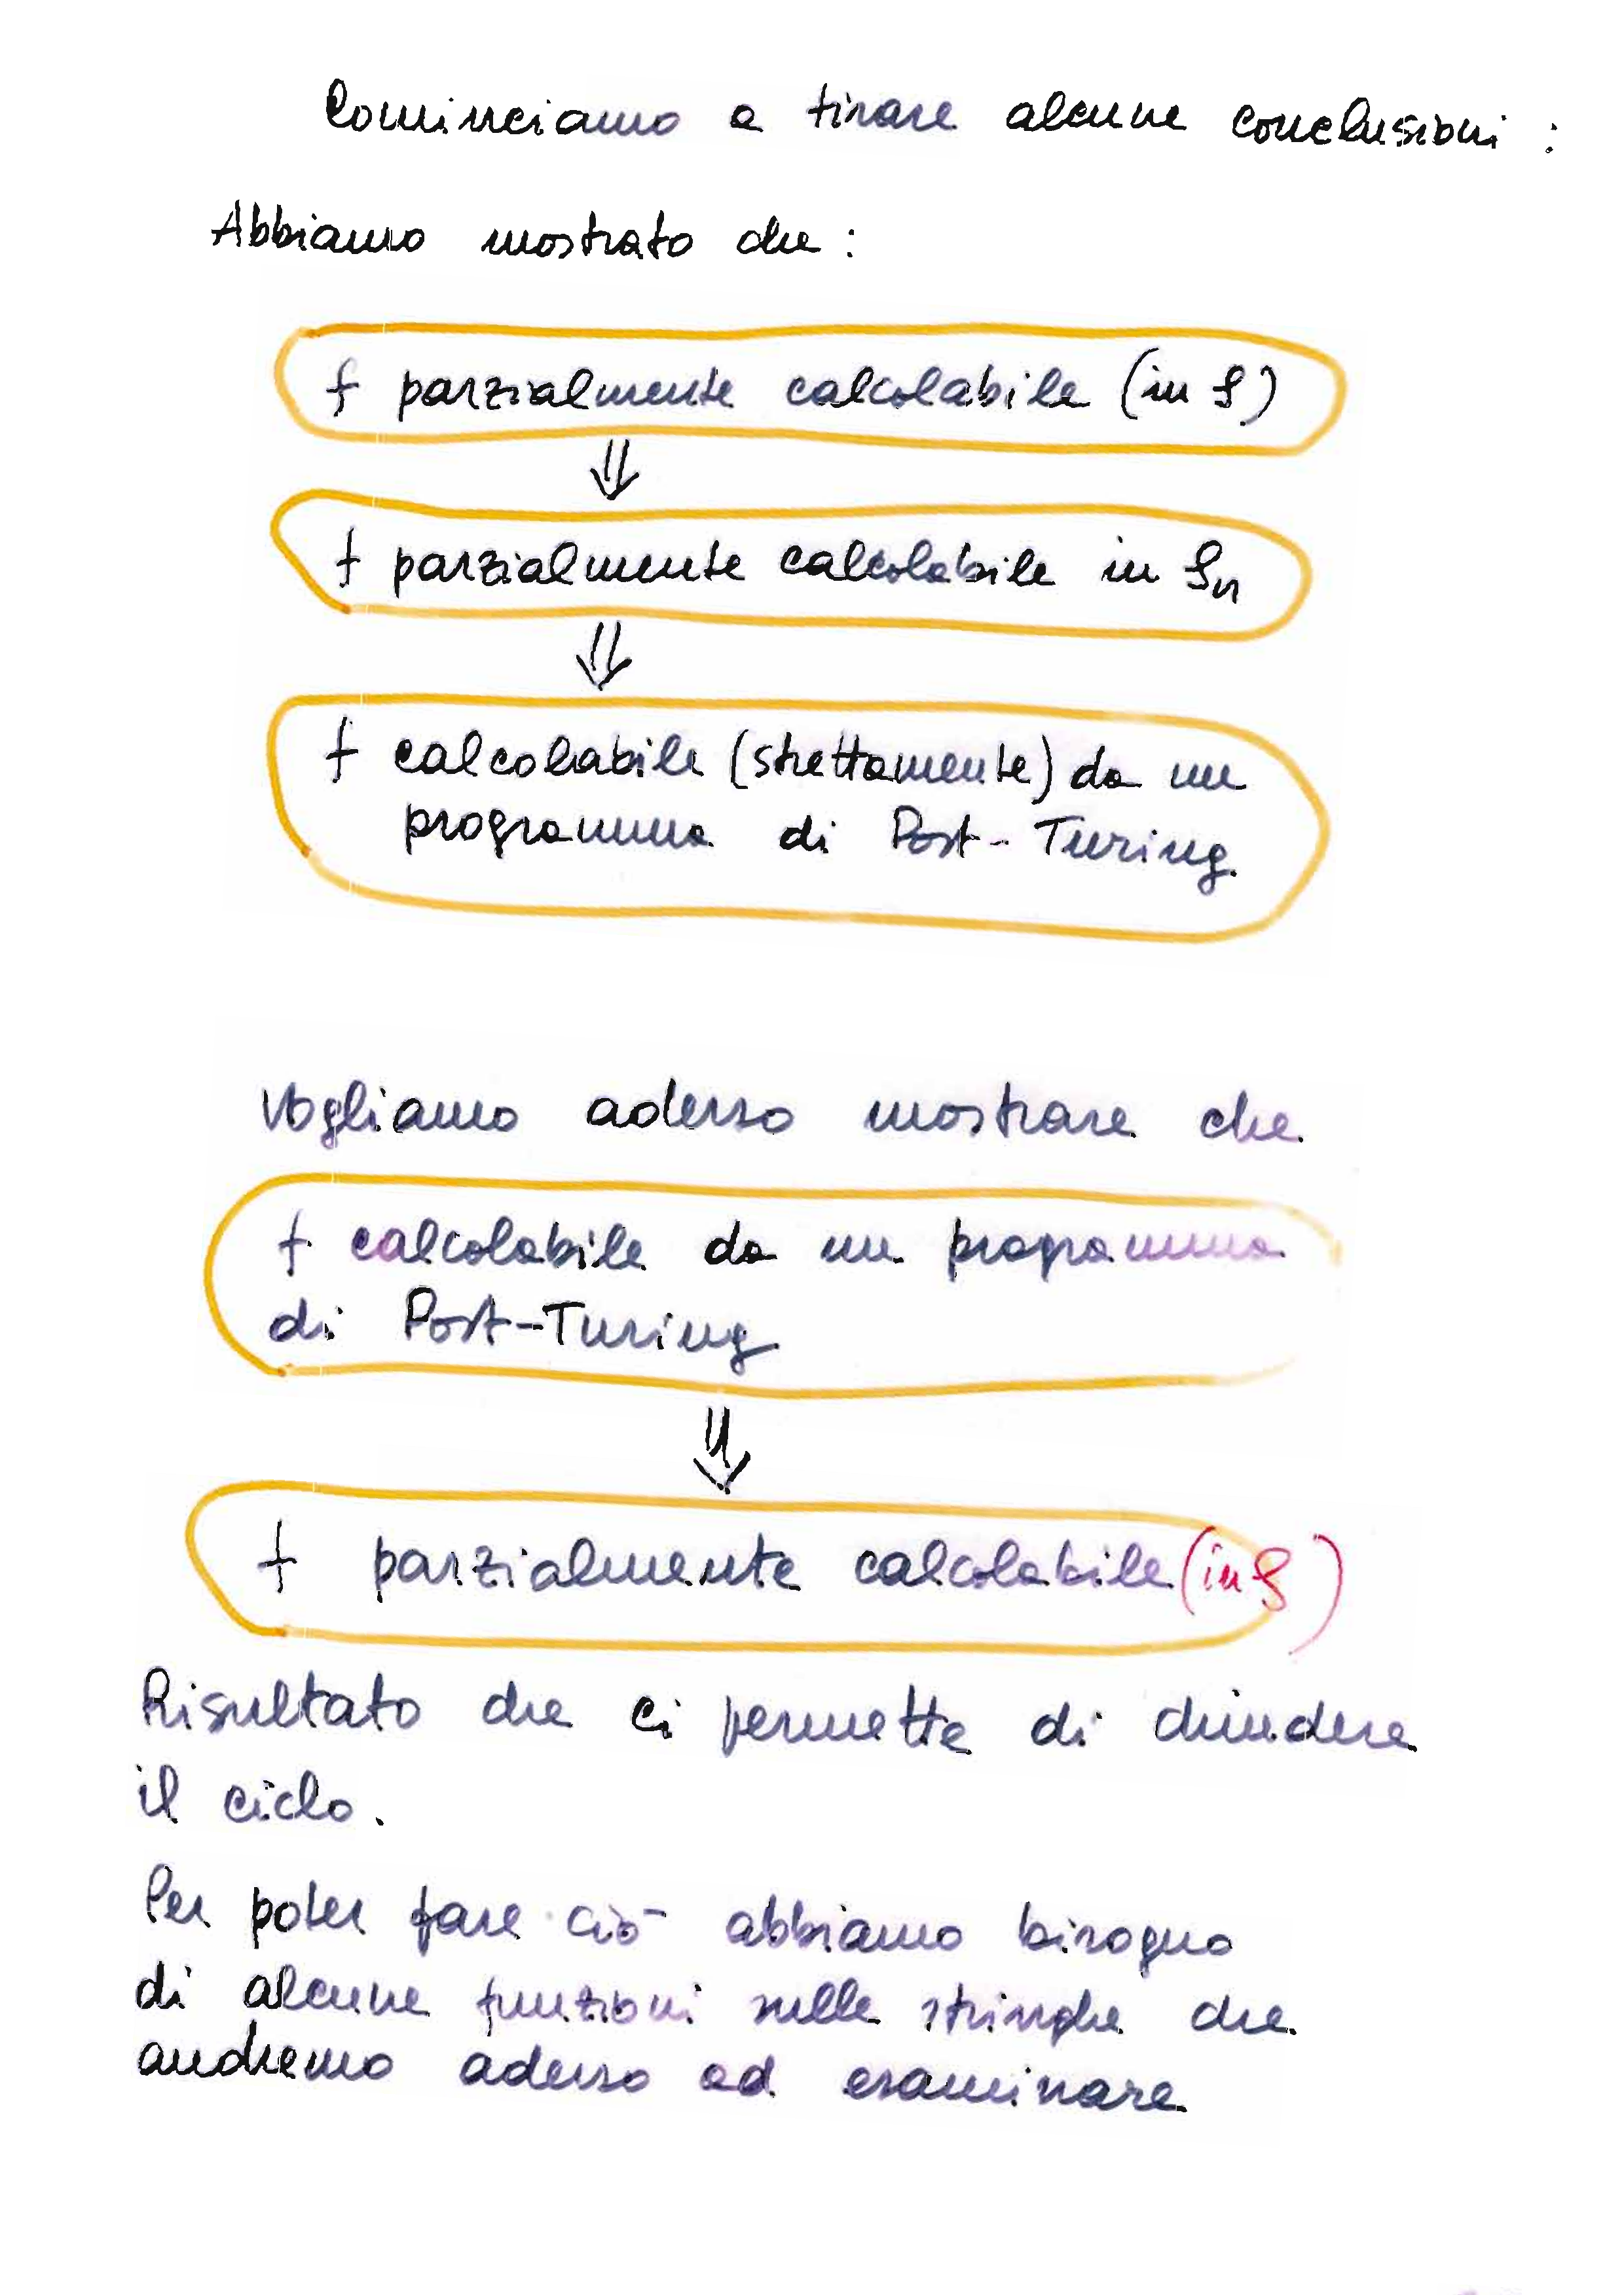 Cominciamo a tirare alcune conclusioni :
Abbiamo mostrato che :
f parzialmente calcolabile (in S)
⇓
f parzialmente calcolabile in Sn
⇓
f calcolabile (strettamente) da un
programma di Post-Turing.
Vogliamo adesso mostrare che
f calcolabile da un programma
di Post-Turing
⇓
f parzialmente calcolabile (in S)
Risultato che ci permette di chiudere
il ciclo.
Per poter fare ciò abbiamo bisogno
di alcune funzioni sulle stringhe che
andremo adesso ad esaminare